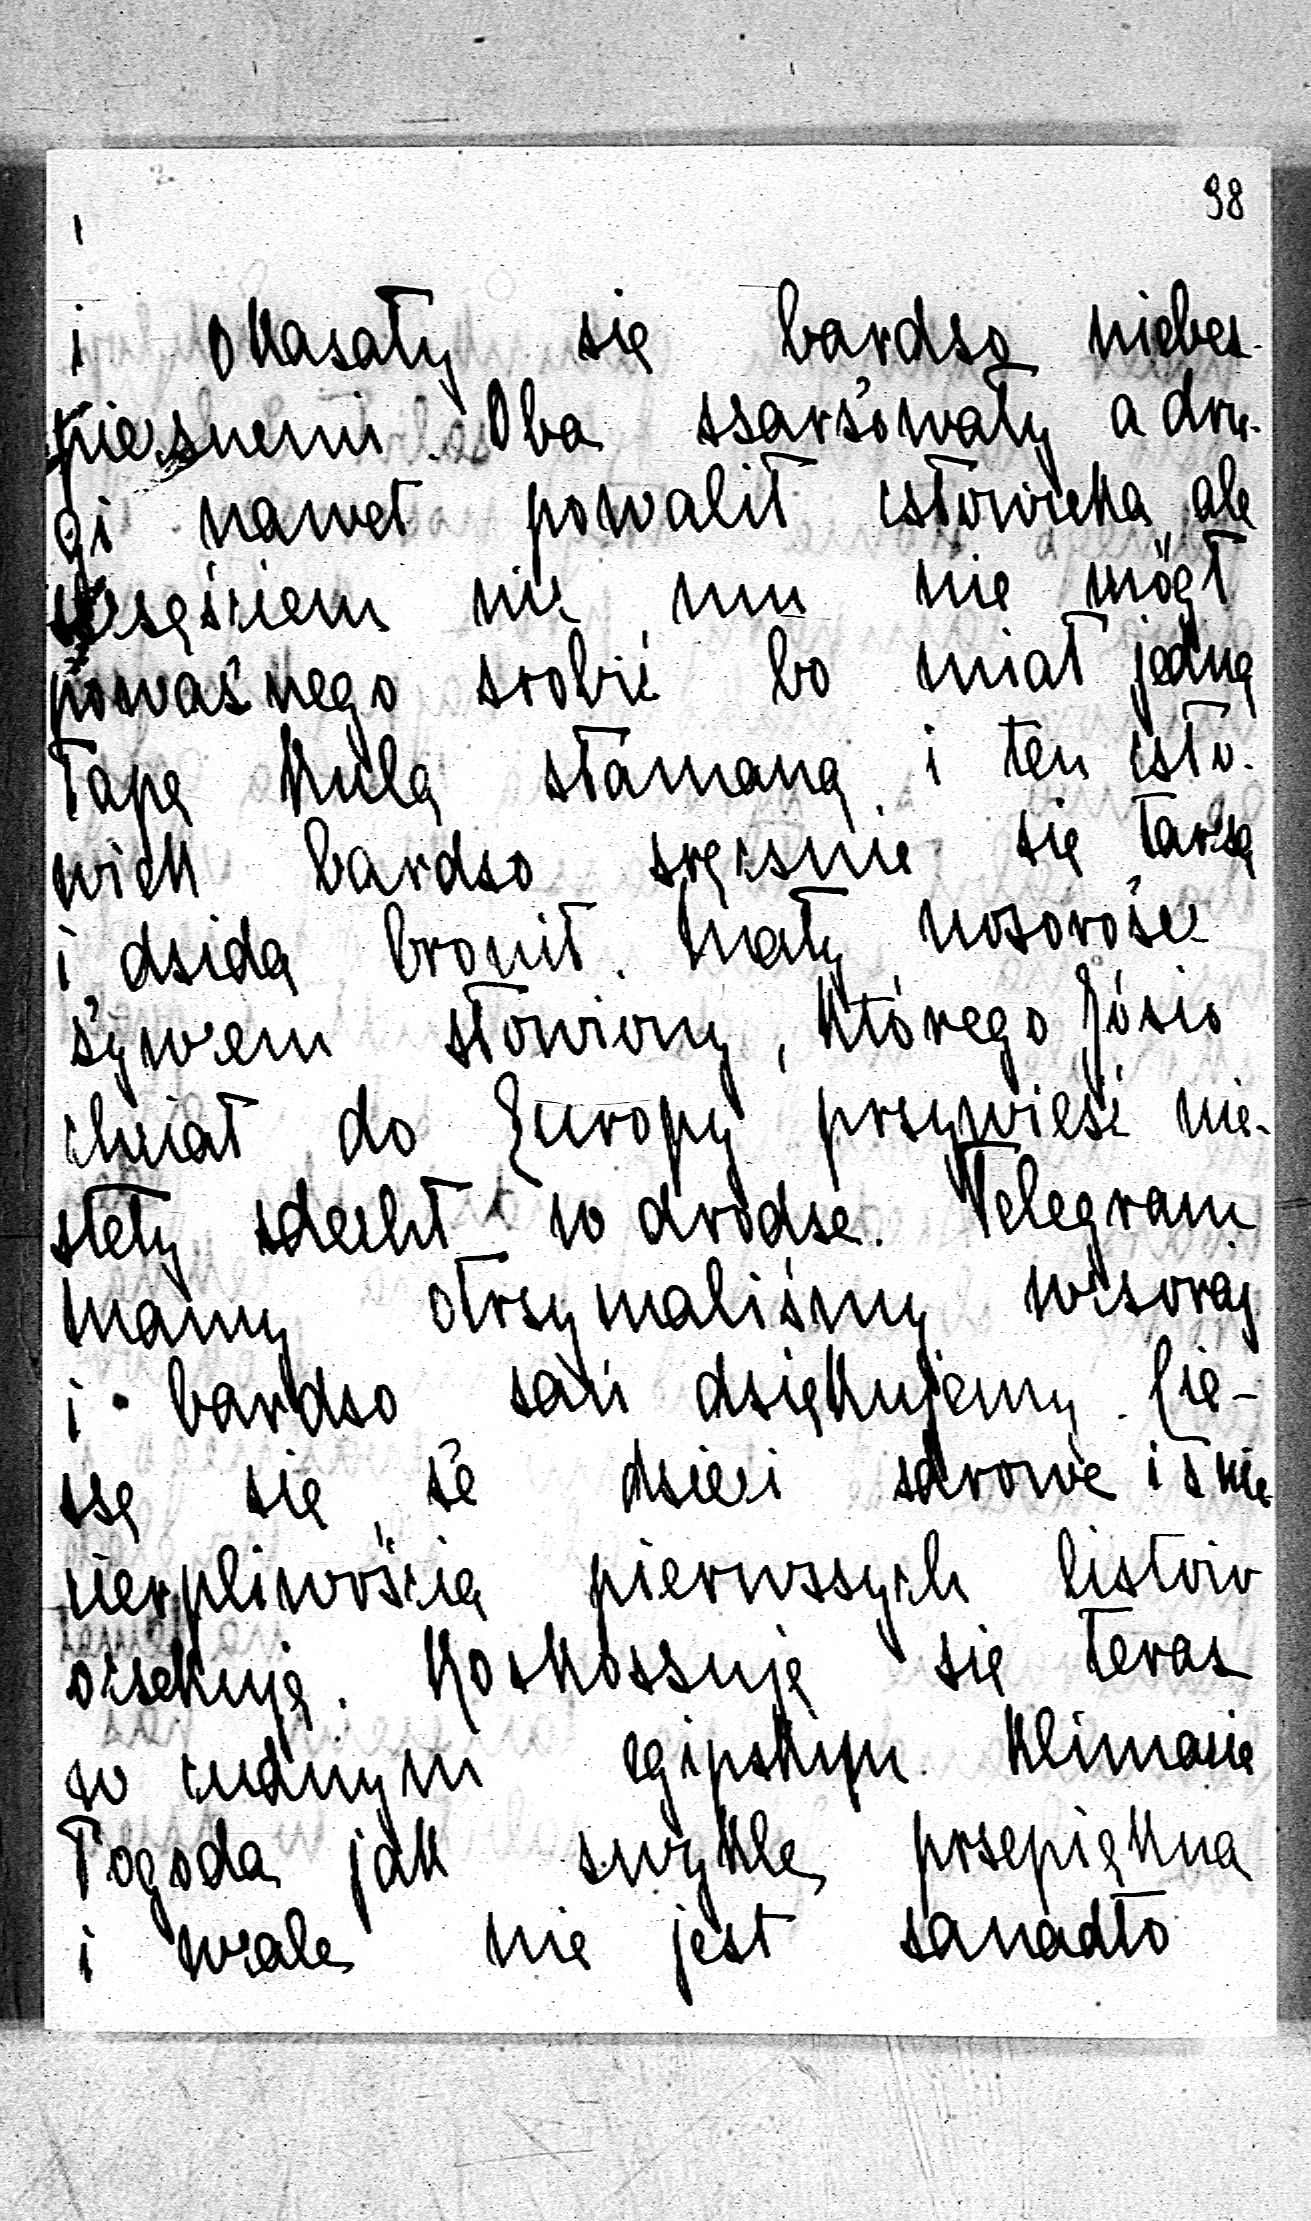 98
i okazały się bardzo niebez-
piecznemi. Oba szarżowały a dru-
gi nawet powalił człowieka ale
szczęściem nic mu nie mógł
poważnego zrobić bo miał jedną
łapę kulą złamaną i ten czło-
wiek bardzo zręcznie się tarczą
i dzidą bronił. Mały nosorożec
żywcem złowiony, którego Józio
chciał do Europy przywieść nie-
stety zdechł w drodze. Telegram
Mamy otrzymaliśmy wczoraj
i bardzo zań dziękujemy. Cie-
szę się że dzieci zdrowe i z nie-
cierpliwością pierwszych listów
oczekuję. Rozkoszuję się teraz
w cudnym egipskim klimacie
Pogoda jak zwykle przepiękna
i wcale nie jest zanadto